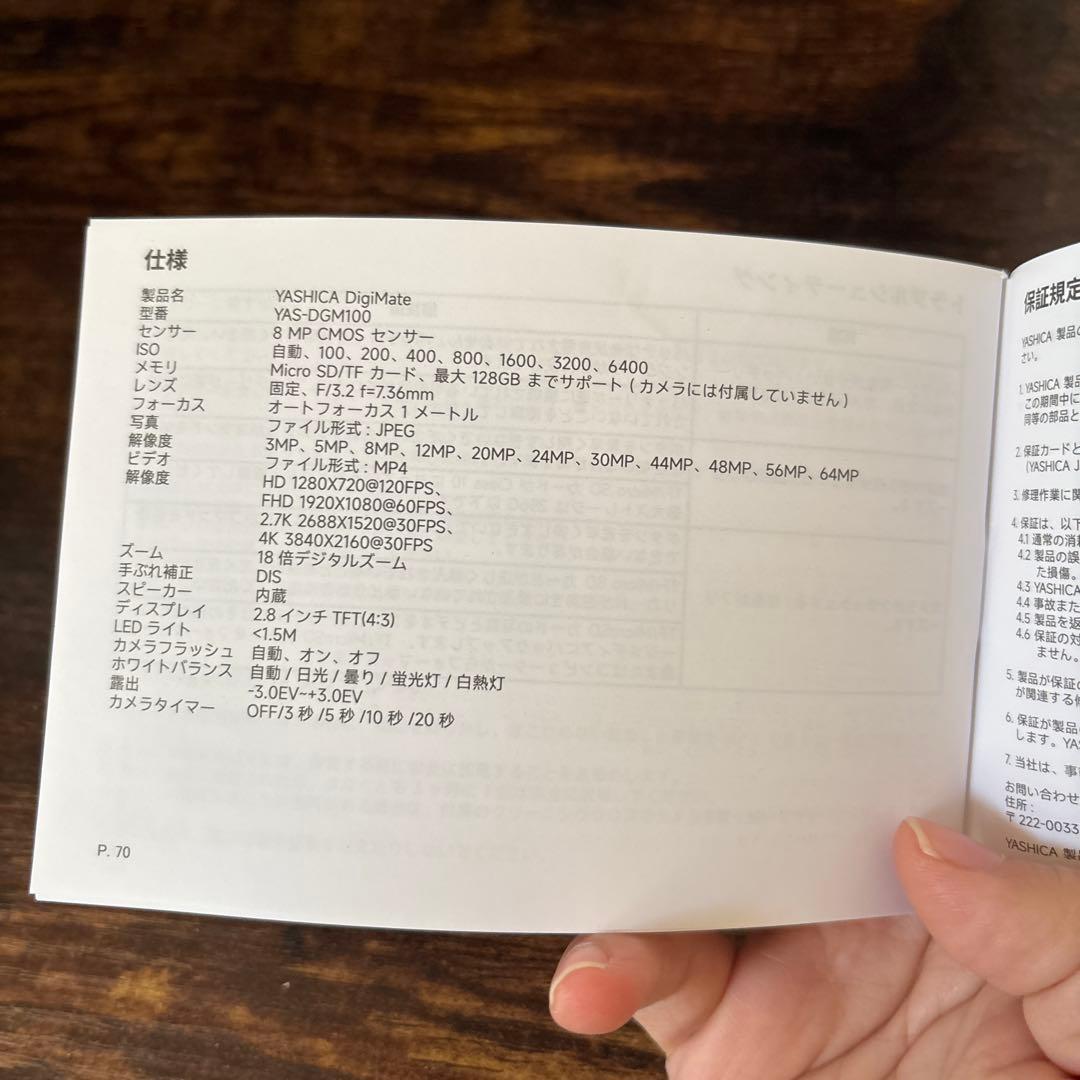 仕様
製品名 YASHICA DigiMate
型番 YAS-DGM100
センサー 8 MP CMOS センサー
ISO 自動、100、200、400、800、1600、3200、6400
メモリ Micro SD/TF カード、最大 128GB までサポート ( カメラには付属していません )
レンズ 固定、F/3.2 f=7.36mm
フォーカス オートフォーカス 1 メートル
写真 ファイル形式 : JPEG
解像度 3MP、5MP、8MP、12MP、20MP、24MP、30MP、44MP、48MP、56MP、64MP
ビデオ ファイル形式 : MP4
解像度 HD 1280X720@120FPS、
FHD 1920X1080@60FPS、
2.7K 2688X1520@30FPS、
4K 3840X2160@30FPS
ズーム 18 倍デジタルズーム
手ぶれ補正 DIS
スピーカー 内蔵
ディスプレイ 2.8 インチ TFT(4:3)
LED ライト <1.5M
カメラフラッシュ 自動、オン、オフ
ホワイトバランス 自動 / 日光 / 曇り / 蛍光灯 / 白熱灯
露出 -3.0EV~+3.0EV
カメラタイマー OFF/3 秒 /5 秒 /10 秒 /20 秒
P. 70
保証規定
YASHICA 製品の
さい。
1. YASHICA 製品
この期間中に
同等の部品と
2. 保証カードと
(YASHICA J
3. 修理作業に関
4. 保証は、以下
4.1 通常の消耗
4.2 製品の誤
た損傷。
4.3 YASHICA
4.4 事故また
4.5 製品を返
4.6 保証の対
ません。
5. 製品が保証の
が関連する修
6. 保証が製品
します。YAS
7. 当社は、事故
お問い合わせ
住所 :
〒222-0033
YASHICA 製